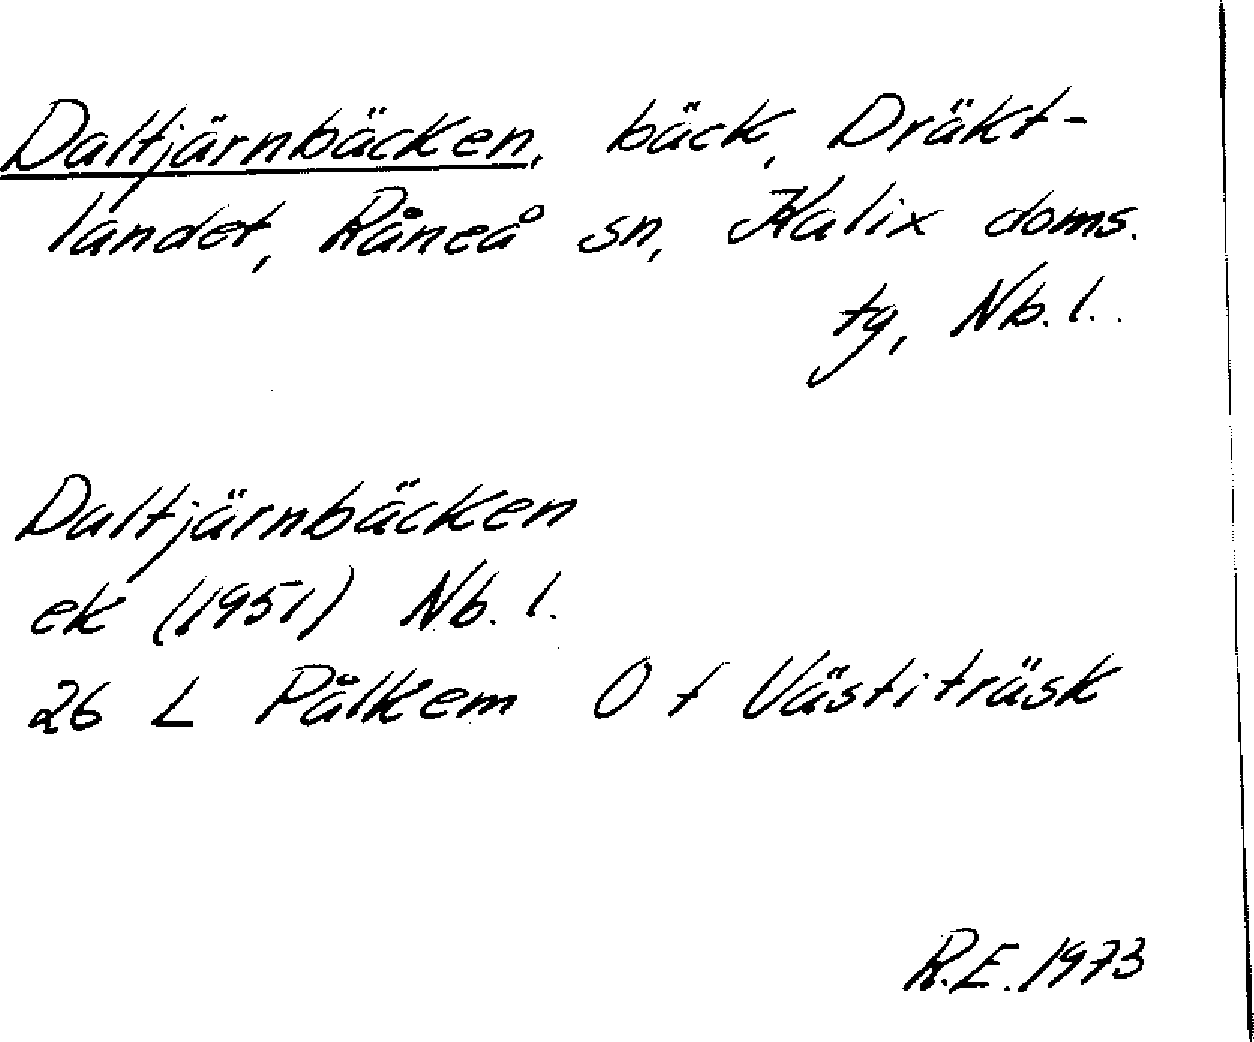 Daltjärnbäcken, bäck, Dräkt-
landet, Råneå sn, Kalix doms.
tg, Nb. l.
Daltjärnbäcken
ek (1951) Nb. l.
26 L Pålkem O t Västiträsk
R.E. 1973